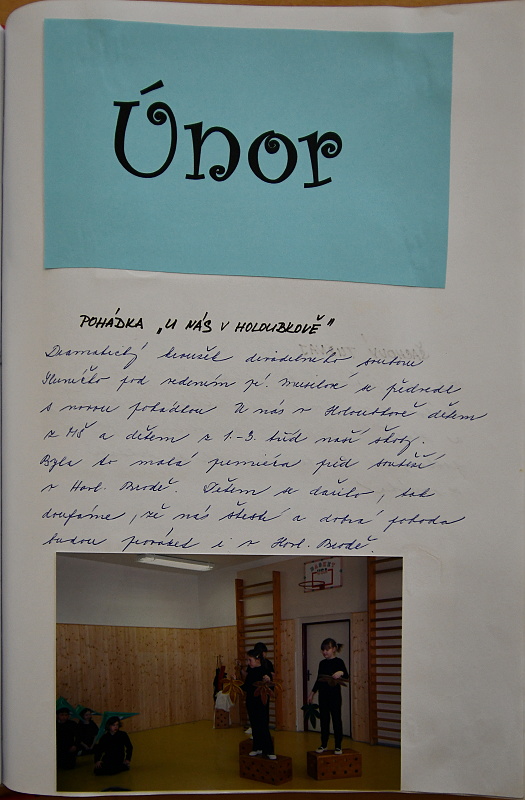 Únor
POHÁDKA „U NÁS V HOLOUBKOVĚ"
Dramatický kroužek divadelního souboru
Sluníčko pod vedením pí. se předvedl
s novou pohádkou U nás v Holoubkově dětem
z MŠ a dětem z 1.-3. tříd naší školy.
Byla to malá premiéra před soutěží
v Havl. Brodě. Dětem se dařilo, tak
doufáme, že nás štěstí a dobrá pohoda
budou provázet i v Havl. Brodě.